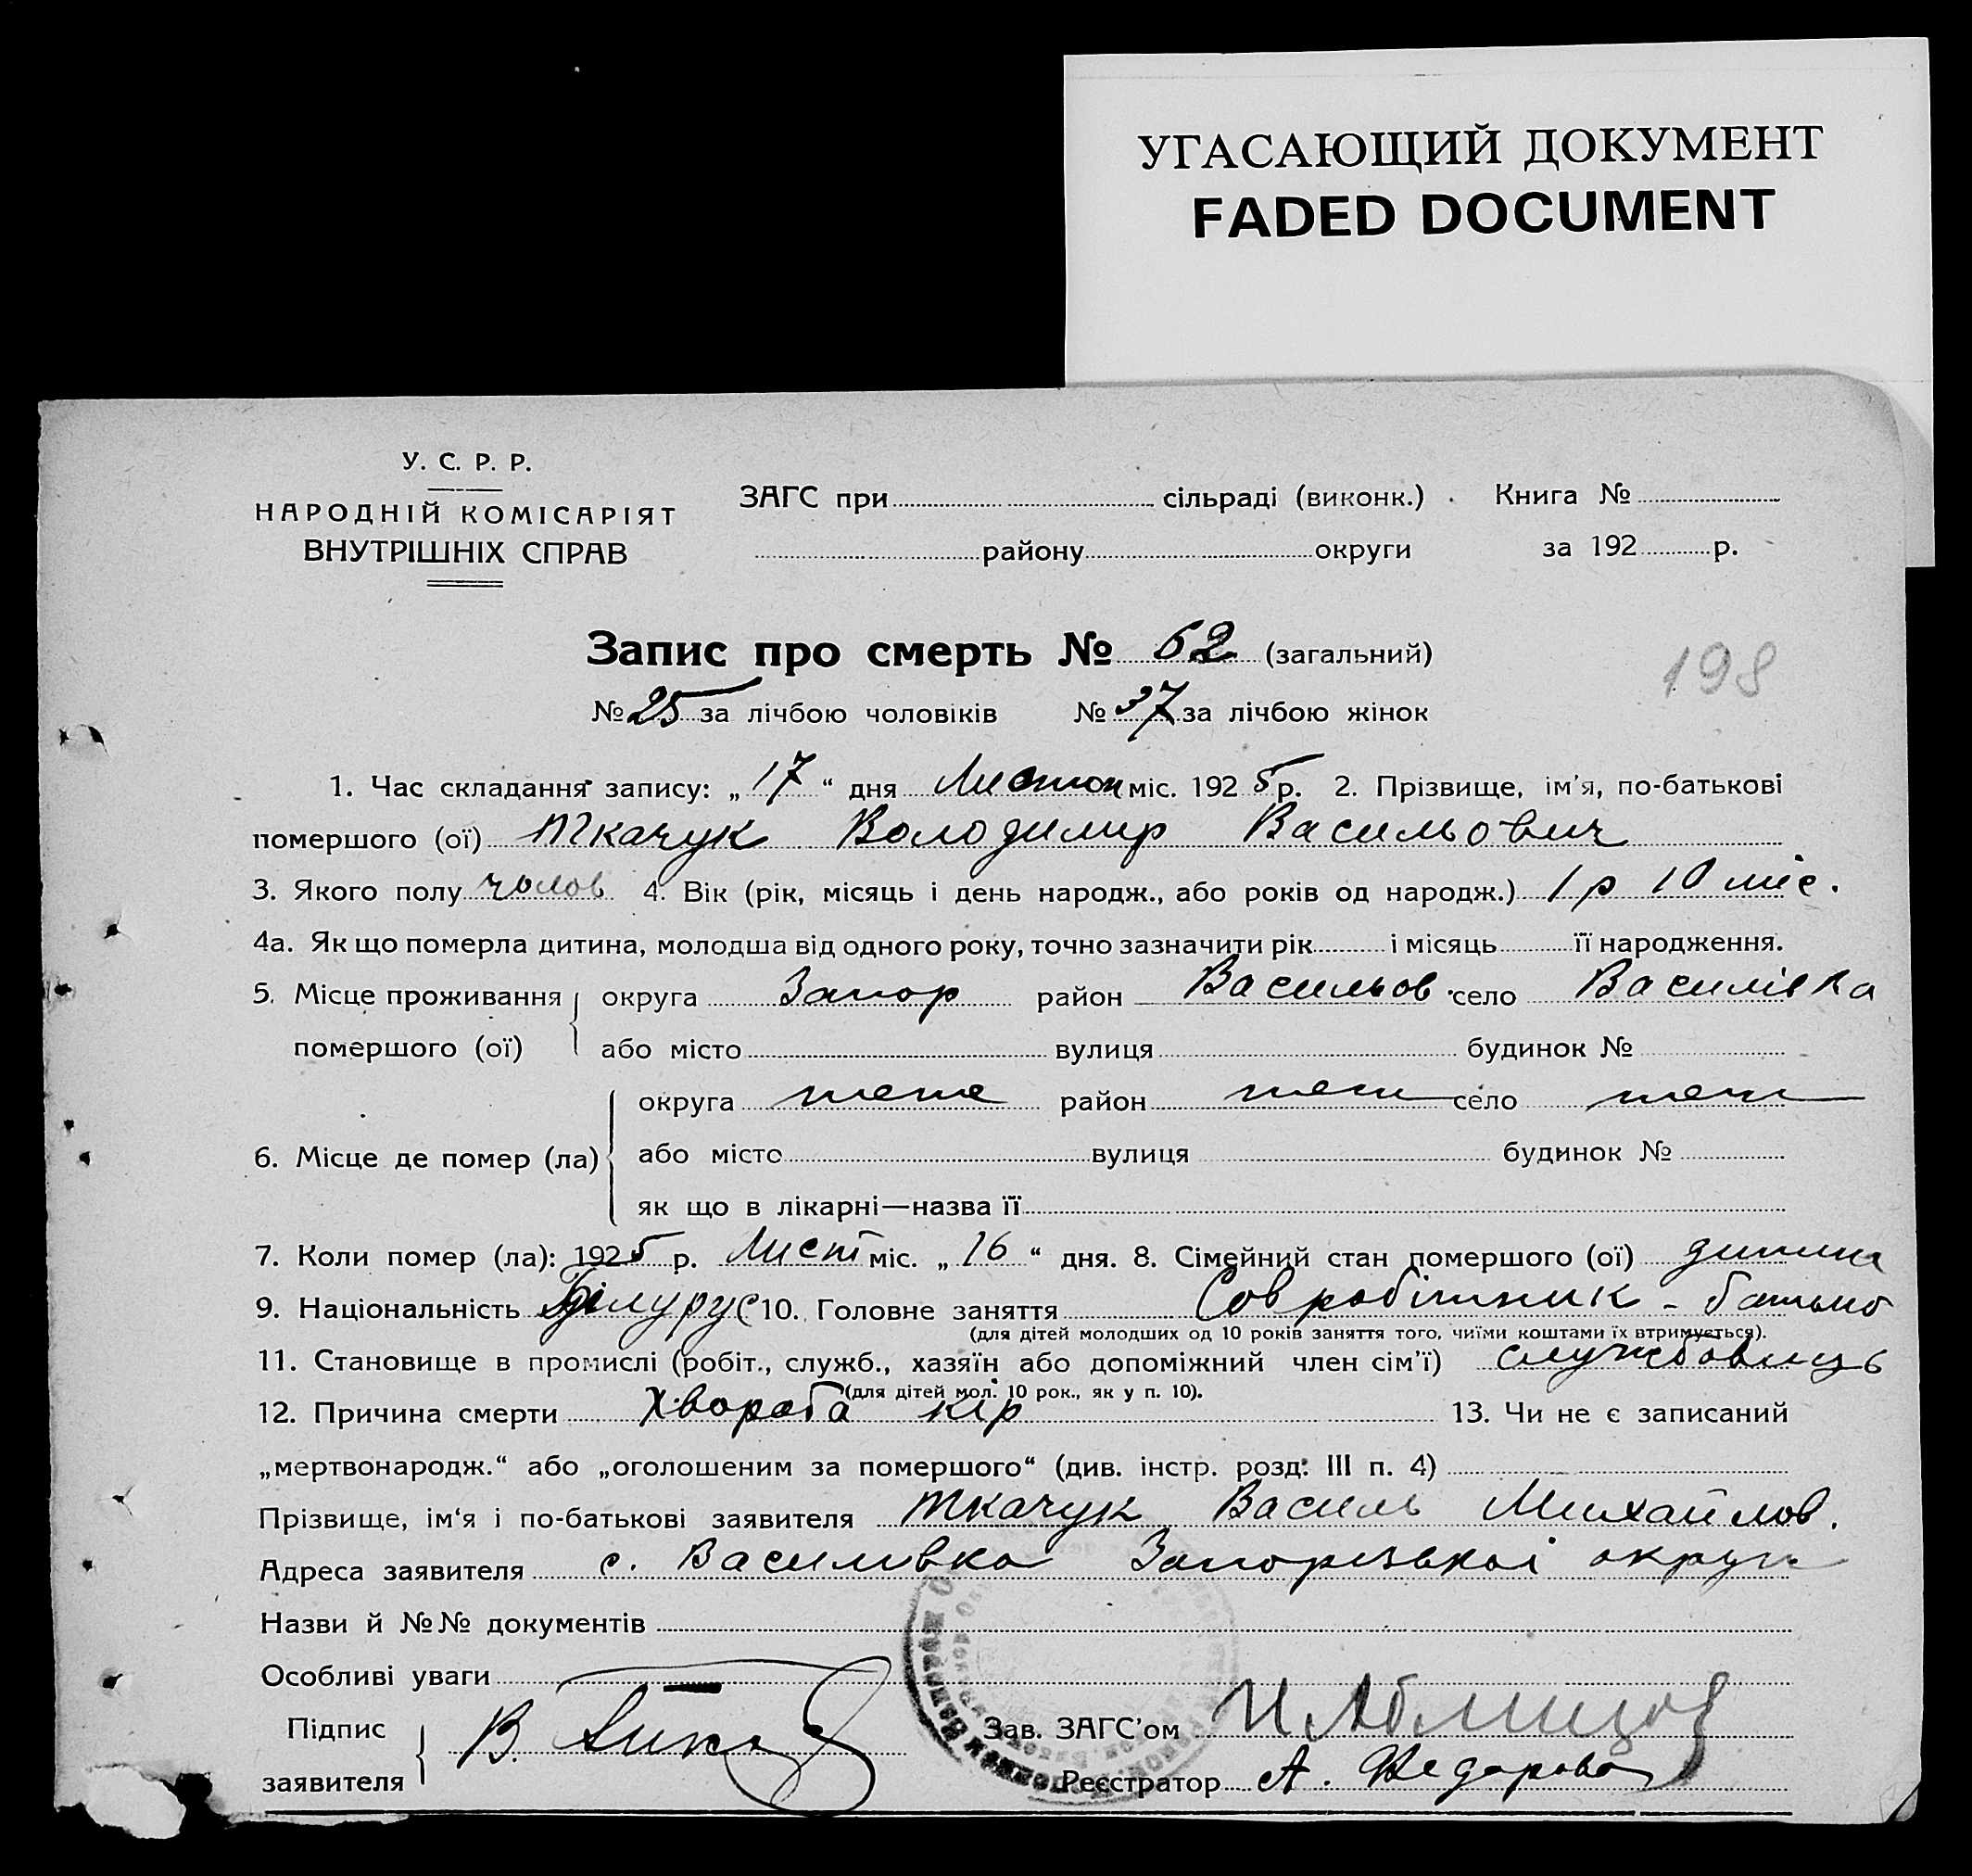 УГАСАЮЩИЙ ДОКУМЕНТ
FADED DOCUMENT
У. С. Р. Р.
НАРОДНІЙ КОМІСАРІЯТ
ВНУТРІШНІХ СПРАВ
ЗАГС при сільраді (виконк.) Книга №
району округи за 192 р.
Запис про смерть № 62 (загальний)
198
№ 25 за лічбою чоловіків № 37 за лічбою жінок
1. Час складання запису: „17“ дня Листоп міс. 1925 р. 2. Прізвище, ім'я, по-батькові
помершого (ої) Ткачук Володимир Васильович
3. Якого полу чолов 4. Вік (рік, місяць і день народж., або років од народж.) 1 р 10 міс.
4а. Як що померла дитина, молодша від одного року, точно зазначити рік і місяць її народження.
5. Місце проживання округа Запор район Васильов. село Василівка
помершого (ої) або місто вулиця будинок №
округа теж район теж село теж
6. Місце де помер (ла) або місто вулиця будинок №
як що в лікарні—назва її
7. Коли помер (ла): 1925 р. Лист міс. „16“ дня. 8. Сімейний стан помершого (ої) дитина
9. Національність Білурус 10. Головне заняття Совробітник - батько
(для дітей молодших од 10 років заняття того, чиїми коштами їх втримується).
11. Становище в промислі (робіт., служб., хазяїн або допоміжний член сім'ї) службовець
(для дітей мол. 10 рок., як у п. 10).
12. Причина смерти хвороба кір 13. Чи не є записаний
„мертвонародж.“ або „оголошеним за помершого“ (див. інстр. розд: III п. 4)
Прізвище, ім'я і по-батькові заявителя Ткачук Василь Михайлов.
Адреса заявителя с. Василивка Запорізької округи
Назви й №№ документів
Особливі уваги
Підпис
заявителя В.
Зав. ЗАГС'ом
Реєстратор А. Федорова